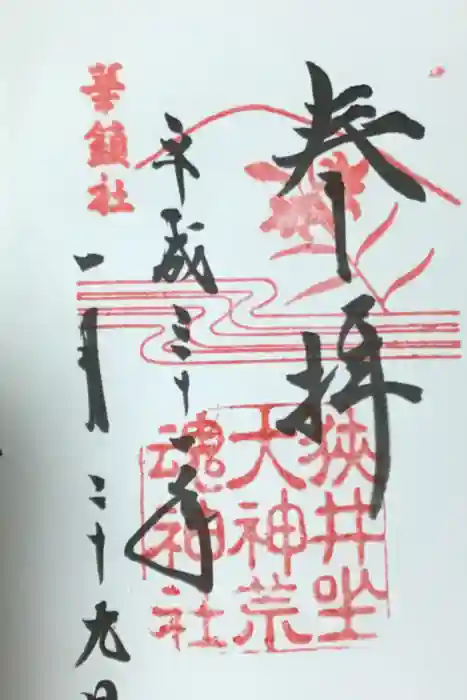 奉拝
狭井坐
大神荒
魂神社
平成三十一年
華鎮社
一月二十九日